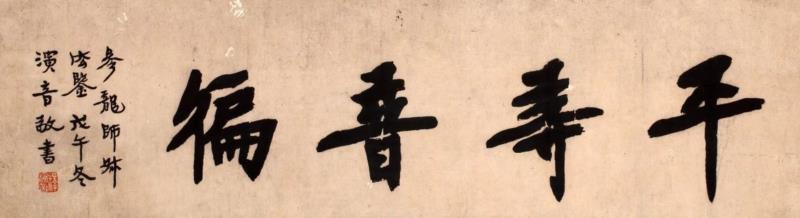 平等普徧
參龍師
法鑒戊午冬
演音敬書